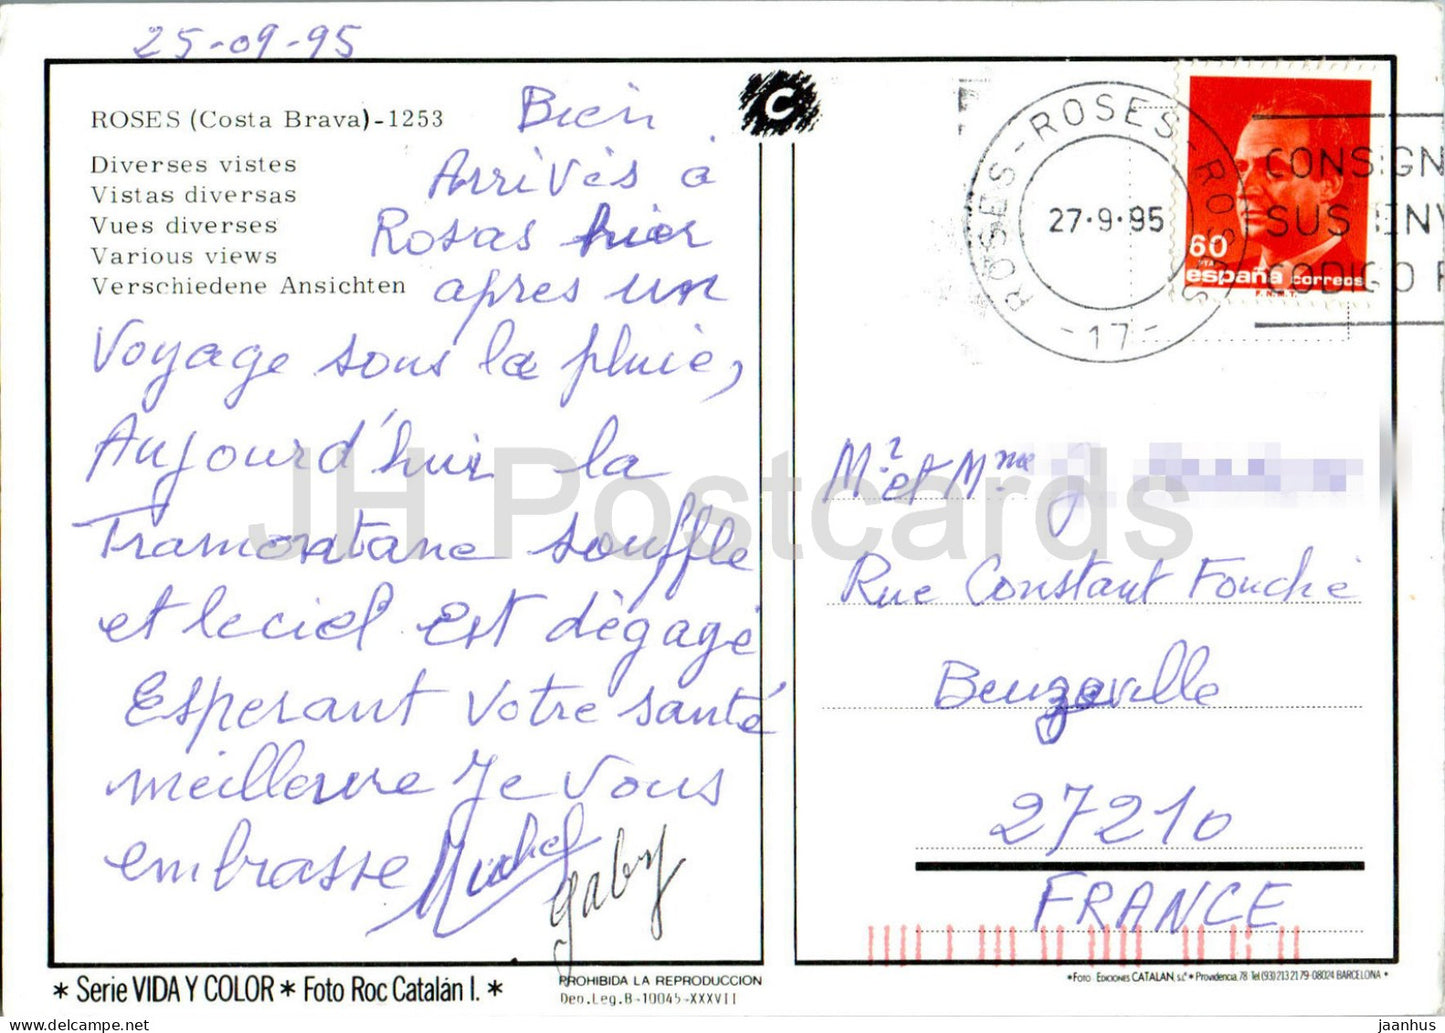 25-09-95
ROSES (Costa Brava)-1253
Diverses vistes
Vistas diversas
Vues diverses
Various views
Verschiedene Ansichten
Bien
Arrivés à
Rosas hier
apres un
Voyage sous la pluie,
Aujourd'hui la
Tramontane souffle
et le ciel Est dégagé
Esperant votre santé
meilleure Je Vous
embrasse Michel
Gaby
C
ROSES-ROSES-ROSES
27-9-95
-17-
CONSIGN
SUS ENV
CODIGO P
60
PTA
españa correos
F.N.M.T.
Mr et Mme J.
Rue Constant Fouché
Beuzeville
27210
FRANCE
JH Postcards
* Serie VIDA Y COLOR * Foto Roc Catalán I. *
PROHIBIDA LA REPRODUCCION
Dep.Leg.B-10045-XXXVII
*Foto Ediciones CATALAN, s.c.* Providencia, 78 Tel (93) 213 21 79 - 08024 BARCELONA *
jaanhus@delcampe.net